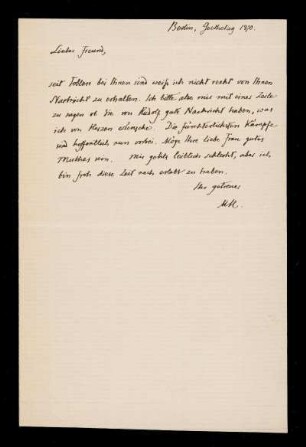 Berlin,
Lieber Freund,
seit Tollen bei Ihnen sind weiß ich nicht recht von Ihnen
Nachricht zu erhalten. Ich bitte also mir mit einer Zeile
zu sagen ob Sie von gute Nachricht haben, was
ich von Herzen wünsche. Die fürchterlichsten Kämpfe
sind hoffentlich nun vorbei. Möge Ihre liebe Frau guten
Muthes sein. Mir geht's leiblich schlecht, aber ich
bin froh diese Zeit noch erlebt zu haben.
Ihr getreuer